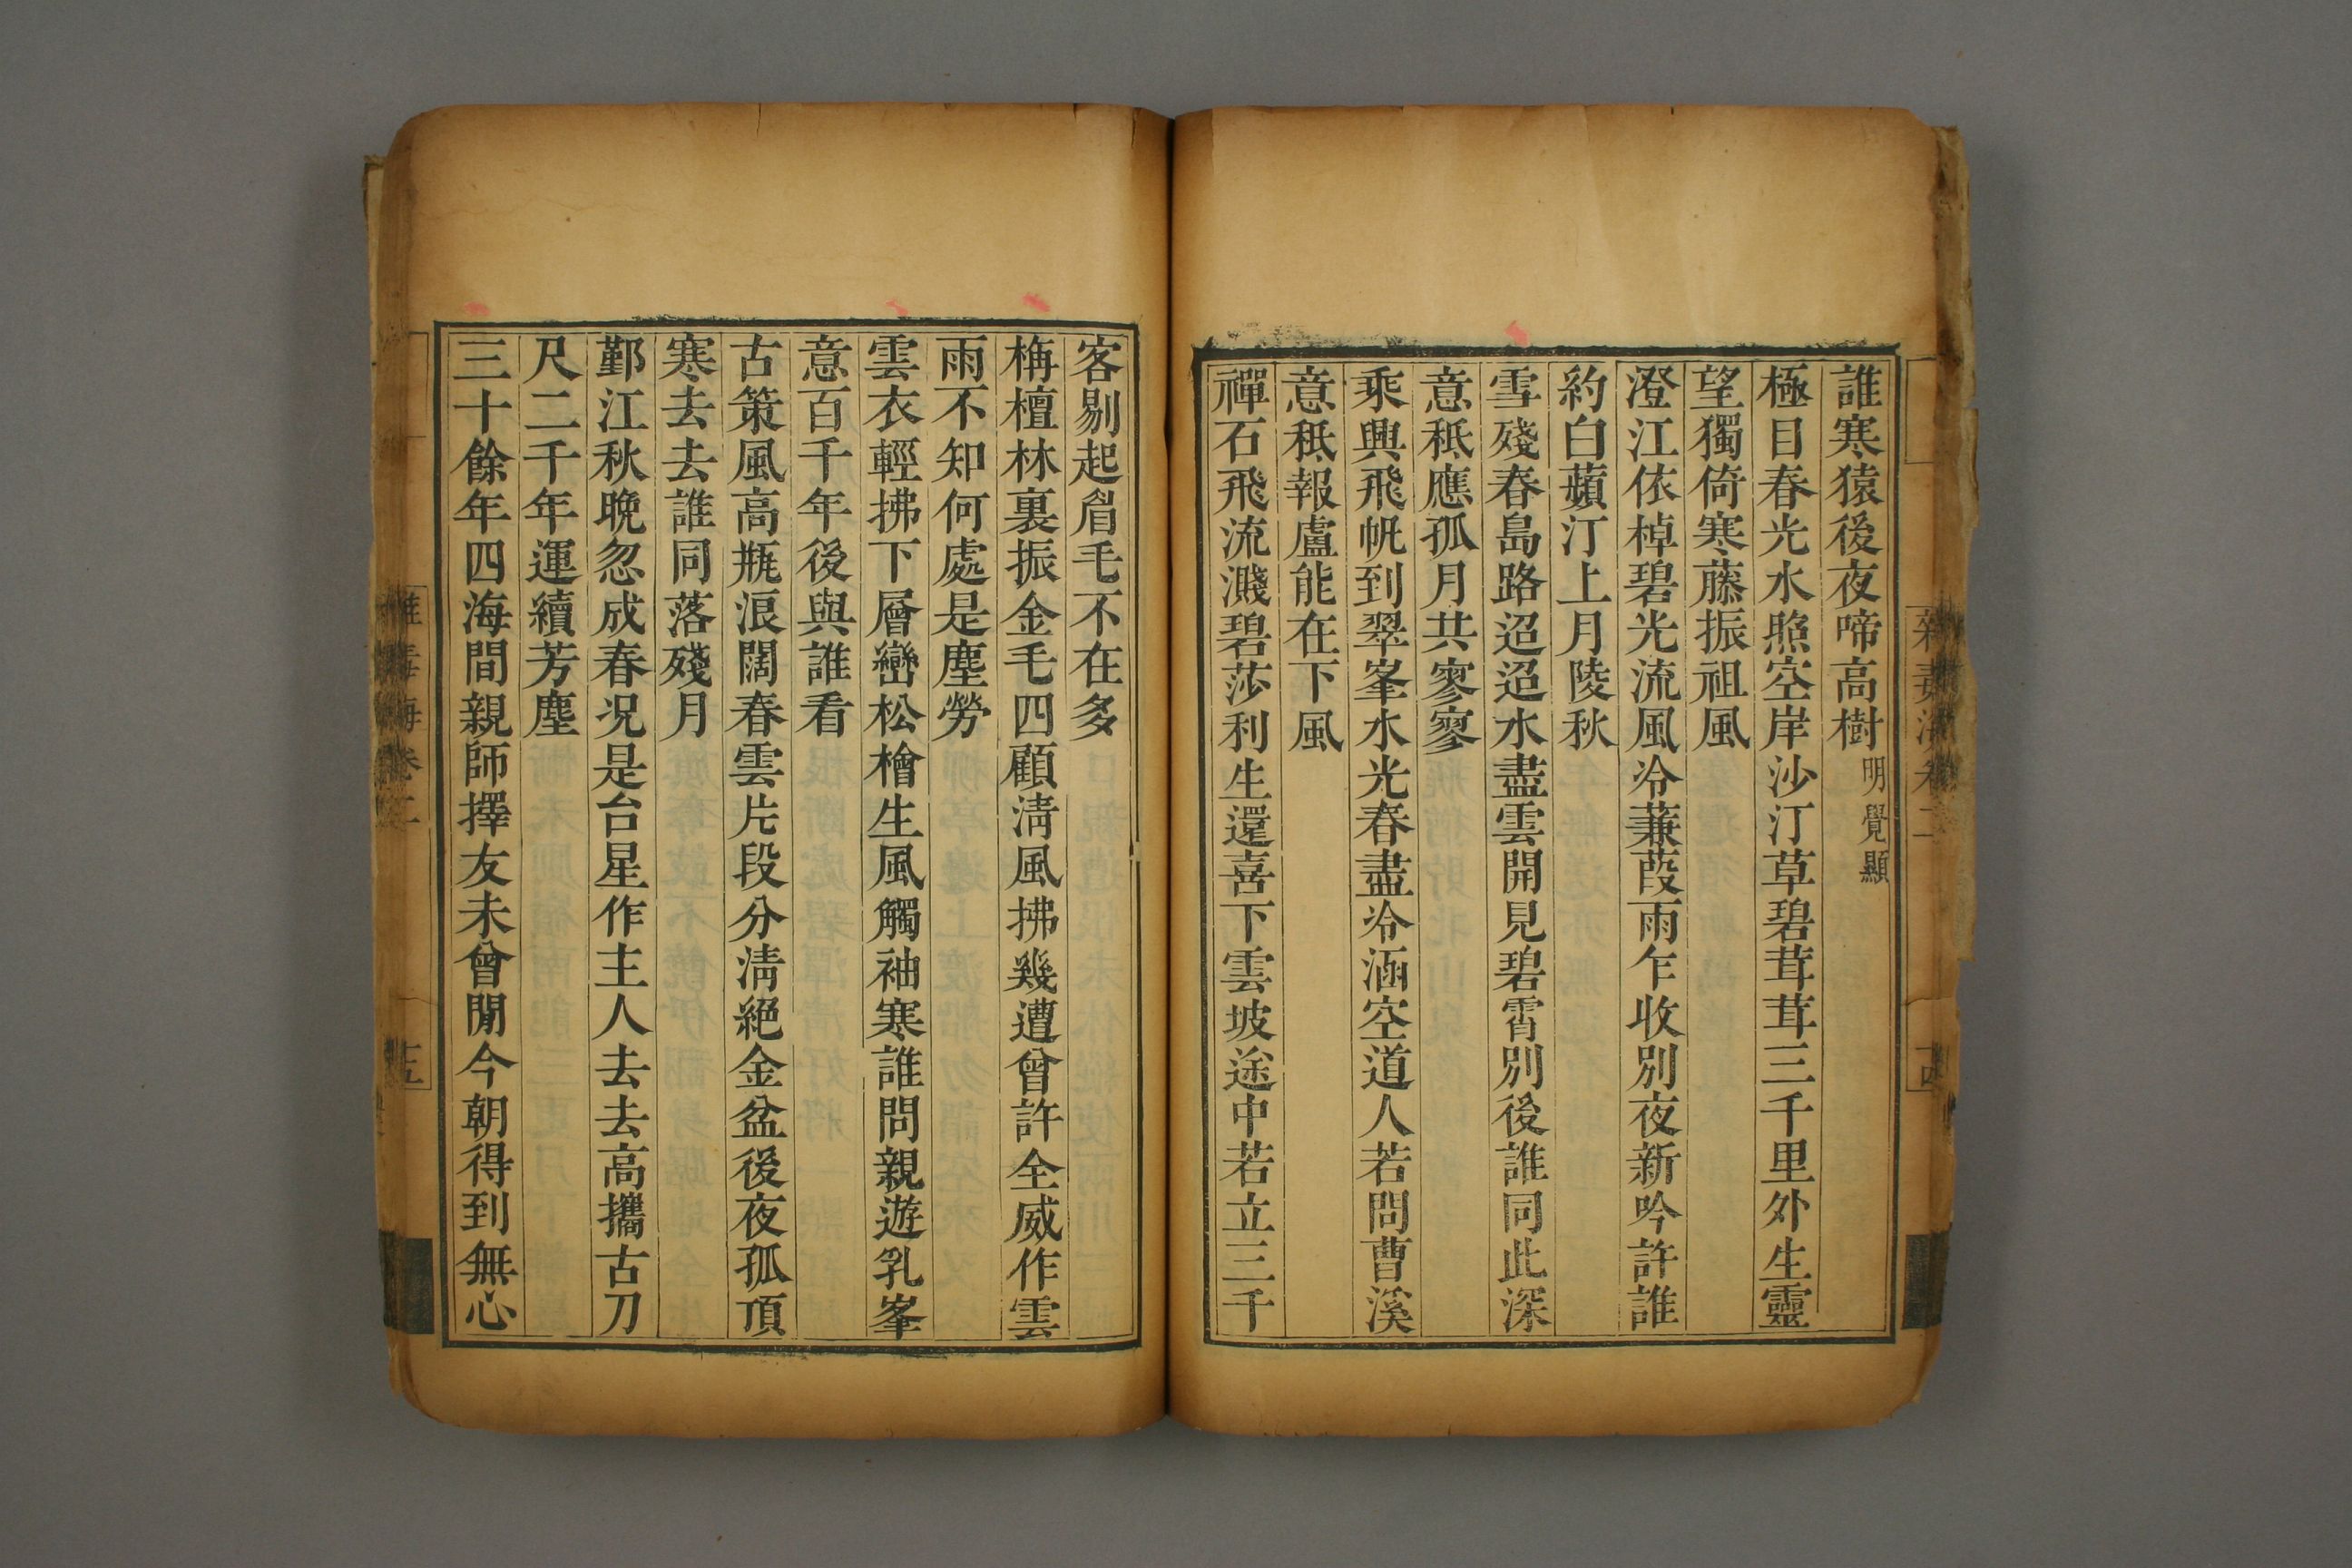 誰寒猿後夜啼高樹明覺顯
極目春光水照空岸沙汀草碧茸茸三千里外生靈
望獨倚寒藤振祖風
澄江依棹碧光流風冷蒹葭雨乍收別夜新吟許誰
約白蘋汀上月陵秋
雪殘春島路迢迢水盡雲開見碧霄別後誰同此深
意秪應孤月共寥寥
乘興飛帆到翠峯水光春盡冷涵空道人若問曹溪
意秪報盧能在下風
禪石飛流濺碧莎利生還喜下雲坡途中若立三千
客剔起眉毛不在多
栴檀林裏振金毛四顧清風拂幾遭曾許全威作雲
雨不知何處是塵勞
雲衣輕拂下層巒松檜生風觸袖寒誰問親遊乳峯
意百千年後與誰看
古策風高瓶浪闊春雲片段分清絕金盆後夜孤頂
寒去去誰同落殘月
鄞江秋晚忽成春况是台星作主人去去高攜古刀
尺二千年運續芳塵
三十餘年四海間親師擇友未曾閒今朝得到無心